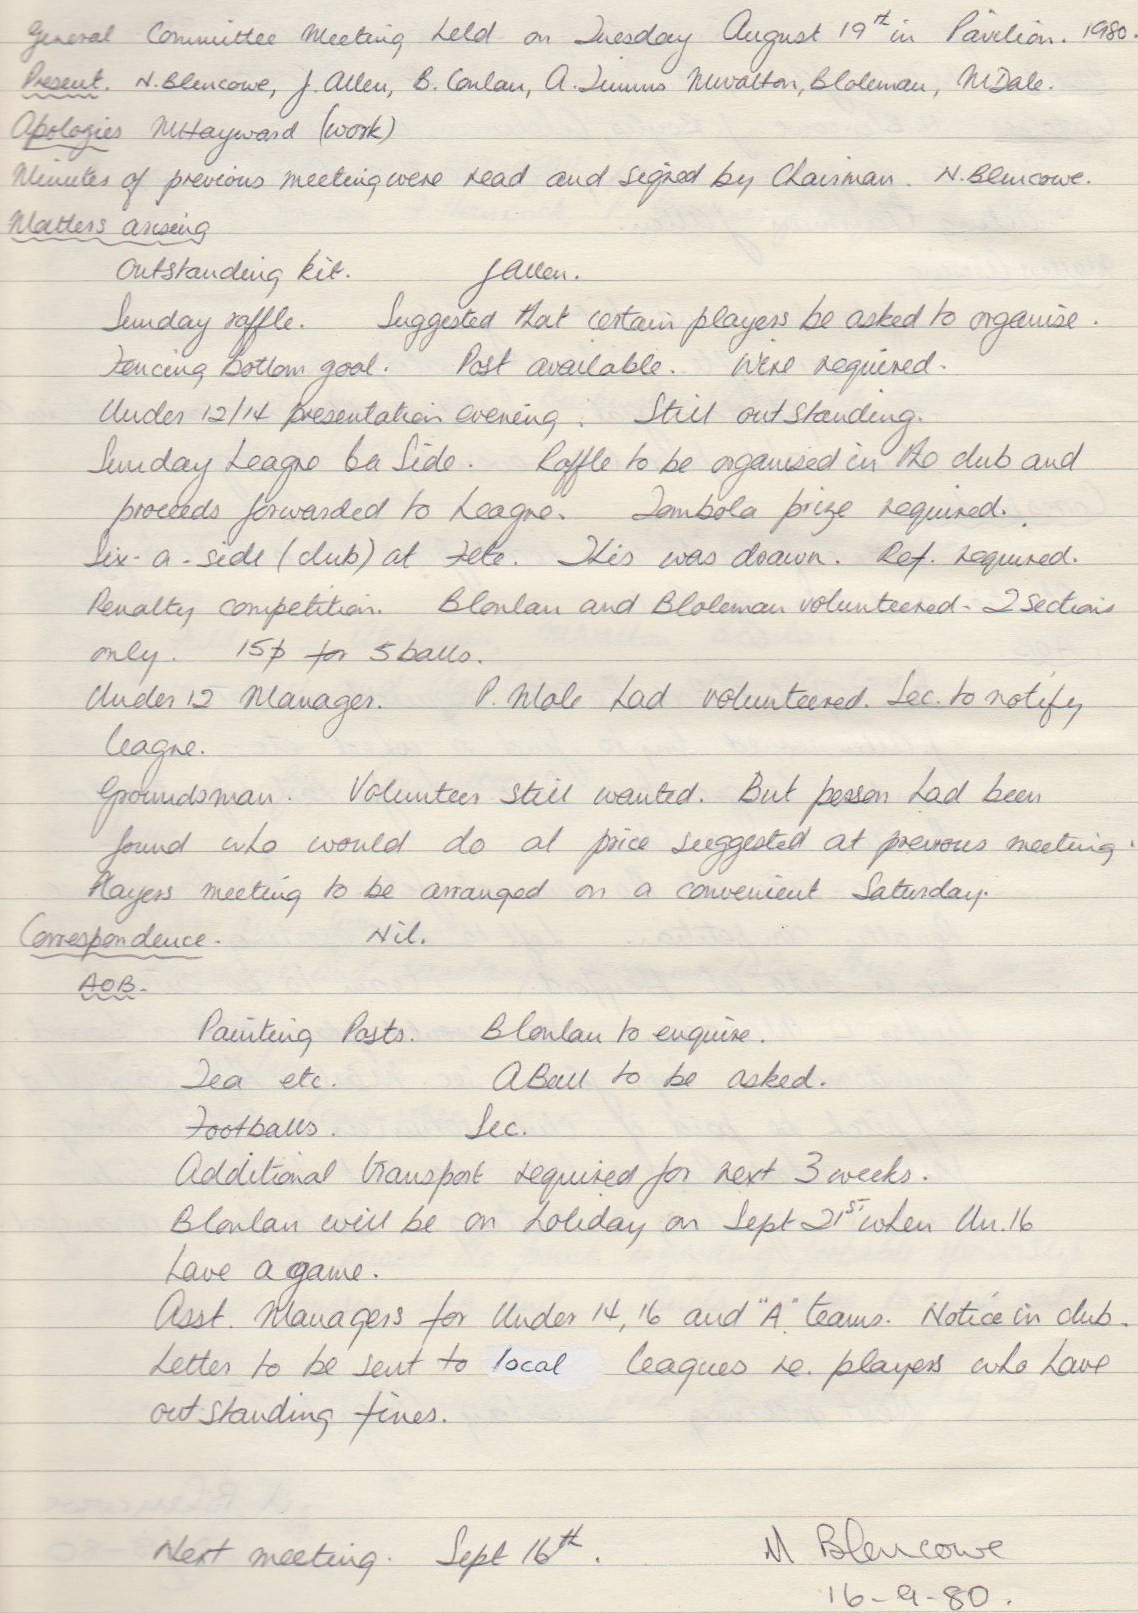 General Committee Meeting held on Tuesday August 19th in Pavilion. 1980.
Present. N. Blencowe, J. Allen, B. Conlan, A. Timms M Walton, B Coleman, M Dale.
Apologies M Hayward (work)
Minutes of previous meeting were read and signed by Chairman. N. Blencowe.
Matters arising
Outstanding kit. J Allen.
Sunday raffle. Suggested that certain players be asked to organise.
Fencing Bottom goal. Post available. Wire required.
Under 12/14 presentation evening. Still outstanding.
Sunday League 6a Side. Raffle to be organised in the club and
proceeds forwarded to League. Tombola prize required.
Six-a-side (club) at Fete. This was drawn. Ref. required.
Penalty competition. B Conlan and B Coleman volunteered - 2 Sections
only. 15p for 5 balls.
Under 12 Manager. P. Mole had volunteered. Sec. to notify
league.
Groundsman. Volunteer still wanted. But person had been
found who would do at price suggested at previous meeting.
Players meeting to be arranged on a convenient Saturday.
Correspondence. Nil.
AOB.
Painting Posts. B Conlan to enquire.
Tea etc. A Ball to be asked.
Footballs. Sec.
Additional transport required for next 3 weeks.
B Conlan will be on holiday on Sept 21st when Un. 16
have a game.
Asst. Managers for Under 14, 16 and "A" teams. Notice in club.
Letter to be sent to local leagues re. players who have
outstanding fines.
Next meeting. Sept 16th. N Blencowe
16-9-80.